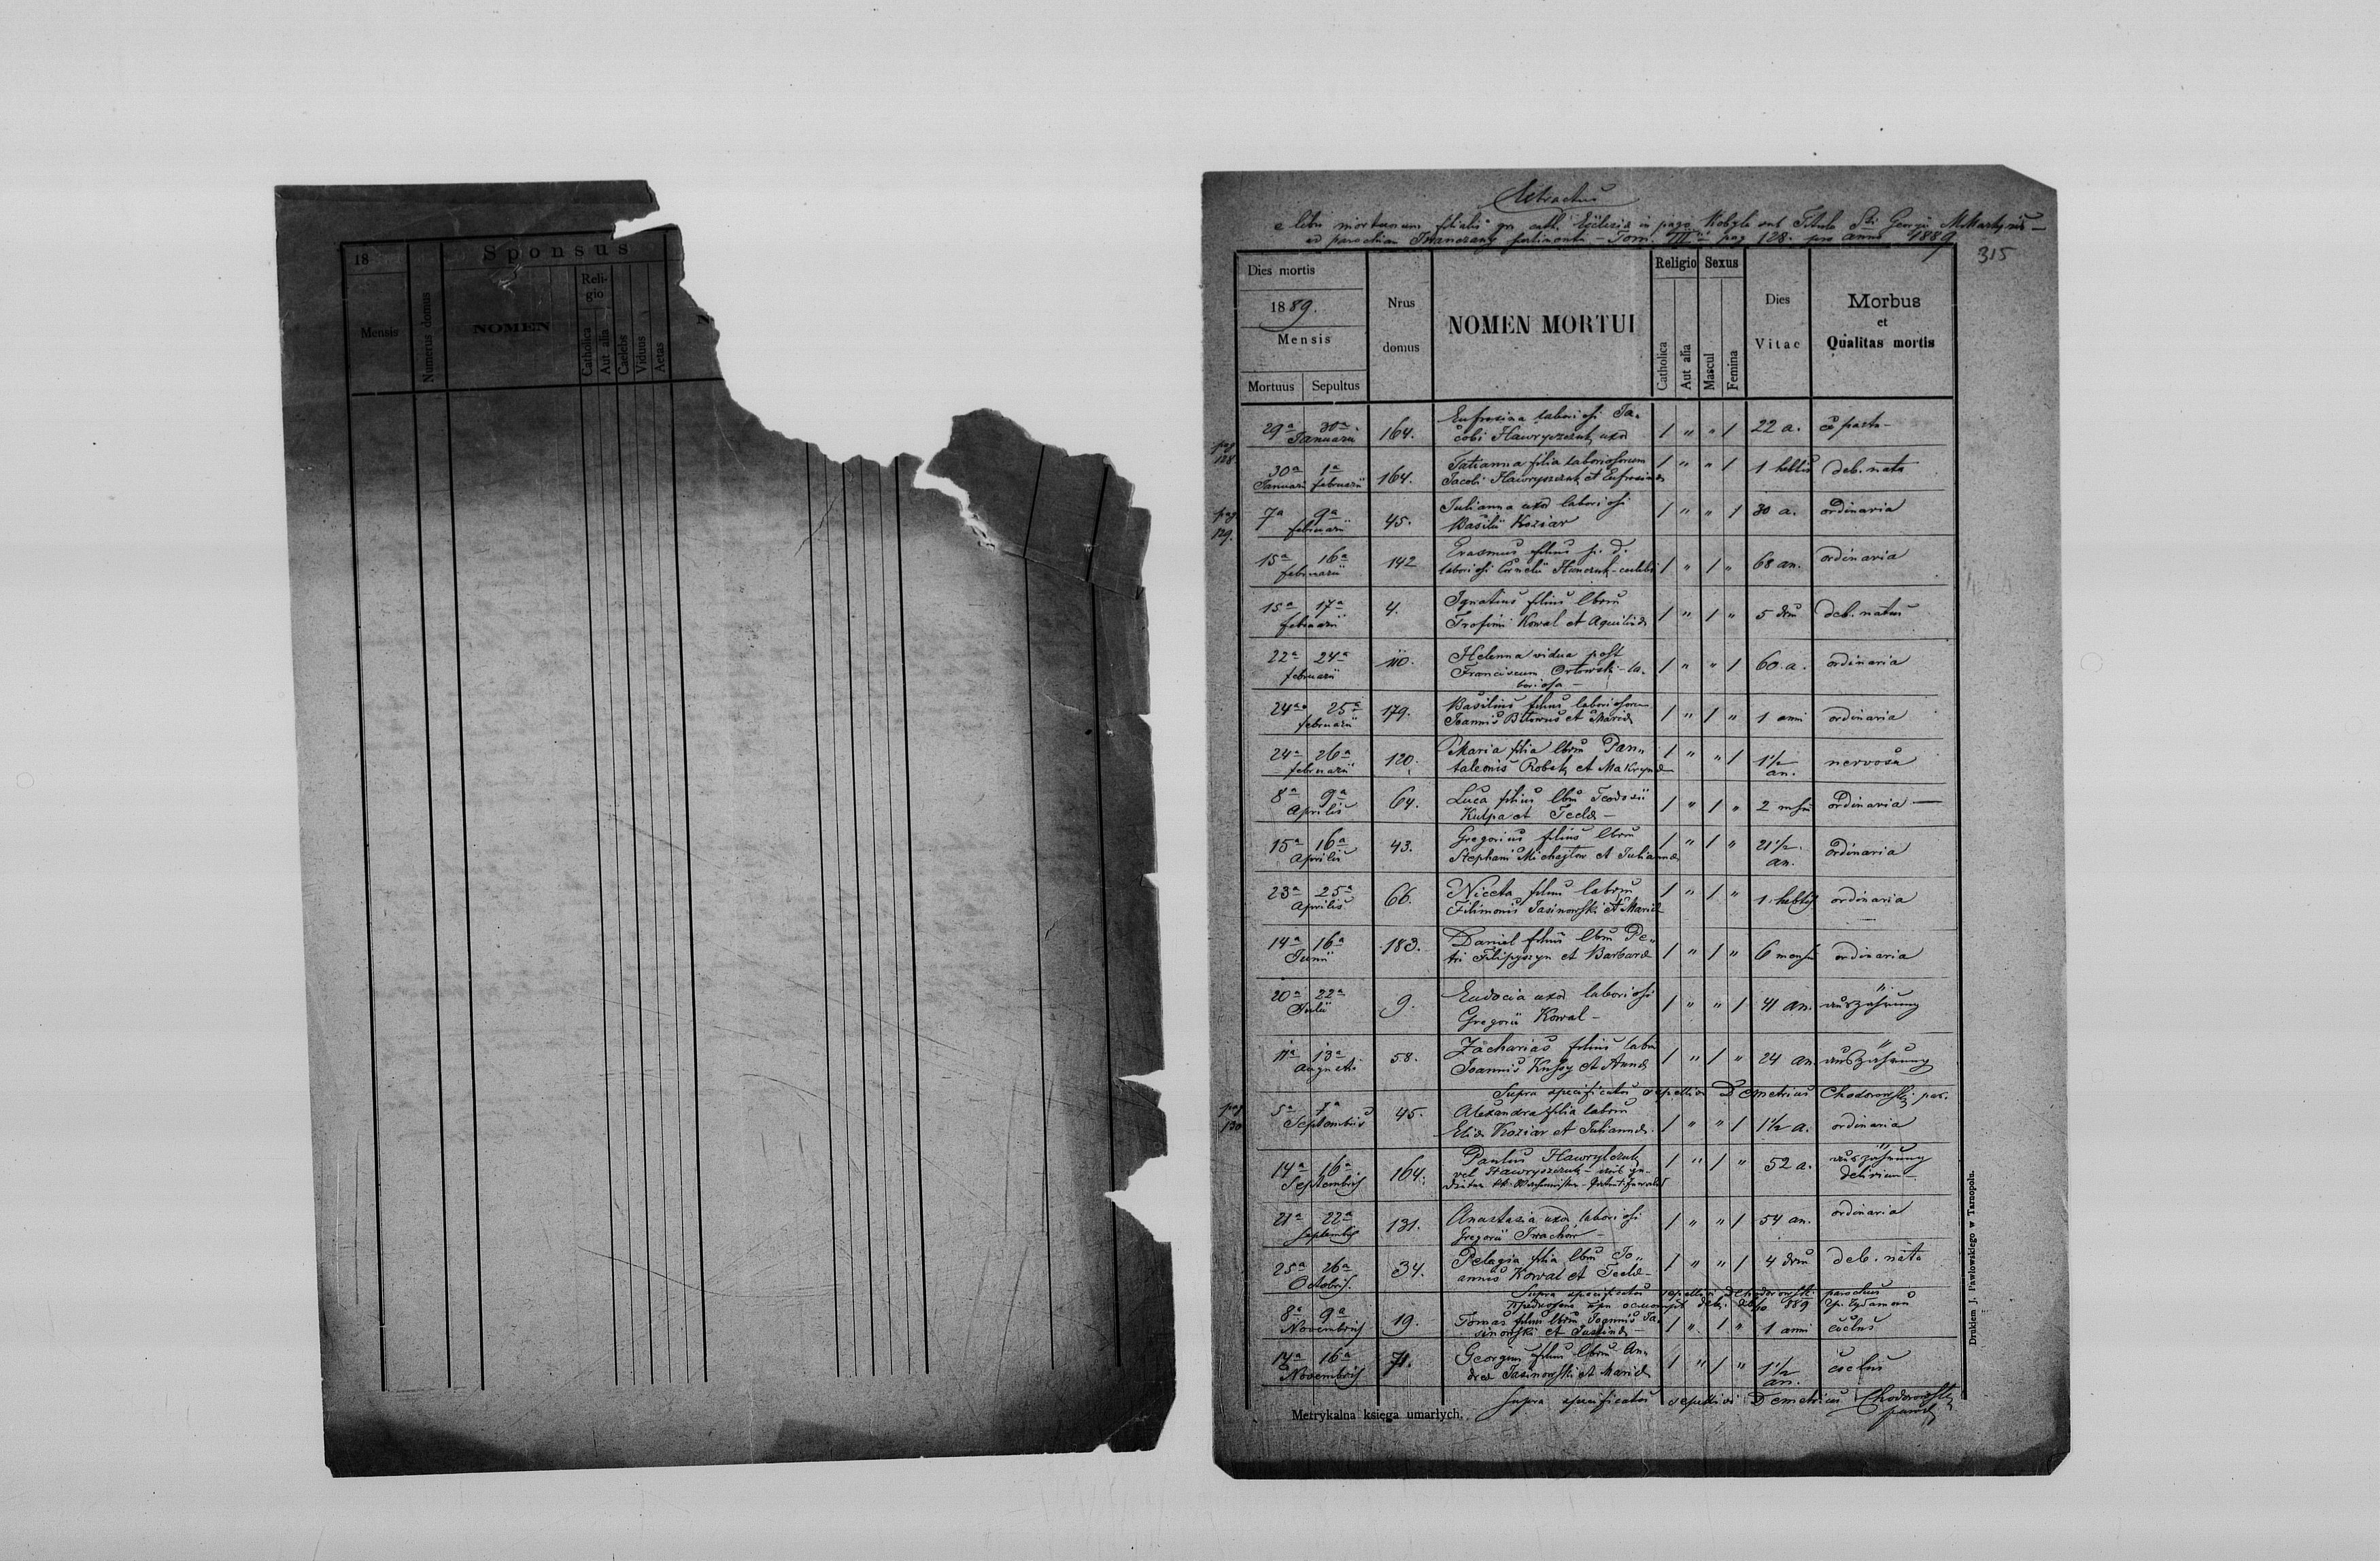 18
Sponsus
Mensis
Numerus domus
NOMEN
Reli-
gio
Catholica
Aut alia
Caelebs
Viduus
Aetas
N
Extractus
e libro mortuorum filialis gr. cath. Ecclesia in pago Kobyla sub Titulo Sti Georgii M. Martyris
ad parochiam Iwanczany pertinentis - Tom. III pag 128. pro anno 1889
315
Dies mortis
1889.
Mensis
Mortuus Sepultus
Nrus
domus
NOMEN MORTUI
Religio
Catholica
Aut alia
Sexus
Mascul
Femina
Dies
Vitae
Morbus
et
Qualitas mortis
pag
128
29a 30a Eufrosina laboriosi Ja-
Januarii 164. cobi Hawryszczuk uxor 1 " " 1 22 a.
30a 1a Tatianna filia laboriosorum
Januarii februarii 164. Jacobi Hawryszczuk et Eufrosinae 1 " " 1 deb. nata
pag
129.
7a 9a Julianna uxor laboriosi
februarii 45. Basilii Koziar 1 " " 1 30 a. ordinaria
15a 16a Erasmus filius p. d.
februarii 142 laboriosi Cornelii 1 " 1 " 68 an. ordinaria
15a 17a Ignatius filius lbrm
februarii 4. Trofimi Kowal et 1 " 1 " 5 drm deb. natus
22a 24a 110. Helenna vidua post
februarii Franciscum Orłowski - la- 1 " " 1 60. a. ordinaria
boriosa -
24a 25a 179. Basilius filius laboriosorum
februarii Joannis et Mariae 1 " 1 " 1 anni ordinaria
24a 26a 120. Maria filia lbrm Pan-
februarii taleonis Robak et Makrynae 1 " " 1 1 1/2 an. nervosa
8a 9a 64. Luca filius lbrm Teodosii
Aprilis Kulpa et Teclae - 1 " 1 " 2 ordinaria -
15a 16a 43. Gregorius filius lbrm
Aprilis Stephani Michajlow et Juliannae 1 " 1 " 21 1/2 an. ordinaria
23a 25a 66. Niceta filius labrm
Aprilis Filimonis Jasinowski et Mariae 1 " 1 " ordinaria
14a 16a 183. Daniel filius lbrm Pe-
Junii tri Filipyszyn et Barbarae 1 " 1 " 6 ordinaria
20a 22a 9. Eudocia uxor laboriosi
Julii Gregorii Kowal - 1 " " 1 41 an. auszährung
11a 13a 58. Zacharias filius labrm
Augusti Joannis et Annae 1 " 1 " 24 an auszährung
Supra specificatos sepelivi Demetrius Chodorowski par.
pag
130
5a 7a 45. Alexandra filia labrm
Septembris Eliae Koziar et Juliannae. 1 " " 1 1 1/2 a. ordinaria
14a 16a 164. Paulus Hawrylczuk
Septembris vel Hawryszczuk - 1 " 1 " 52 a. auszährung
delirium -
21a 22a 131. Anastasia uxor laboriosi
Septembris Gregorii Iwachow - 1 " " 1 54 an. ordinaria
25a 26a 34. Pelagia filia lbrm Jo-
Octobris. annis Kowal et Teclae - 1 " " 1 4 drm deb. nata
Supra specificatos sepelivi D Chodorowski parochus
8a 9a 19. Tomas filius lbrm Joannis Ja-
Novembris sinowski et Justinae - 1 " 1 " 1 anni
14a 16a 71. Georgius filius lbrm An-
Novembris dreae Jasinowski et Mariae 1 " 1 " 1 1/2 an.
Supra specificatos sepelivi Demetrius Chodorowski
paroch
Metrykalna księga umarłych.
Drukiem J. Pawłowskiego w Tarnopolu.